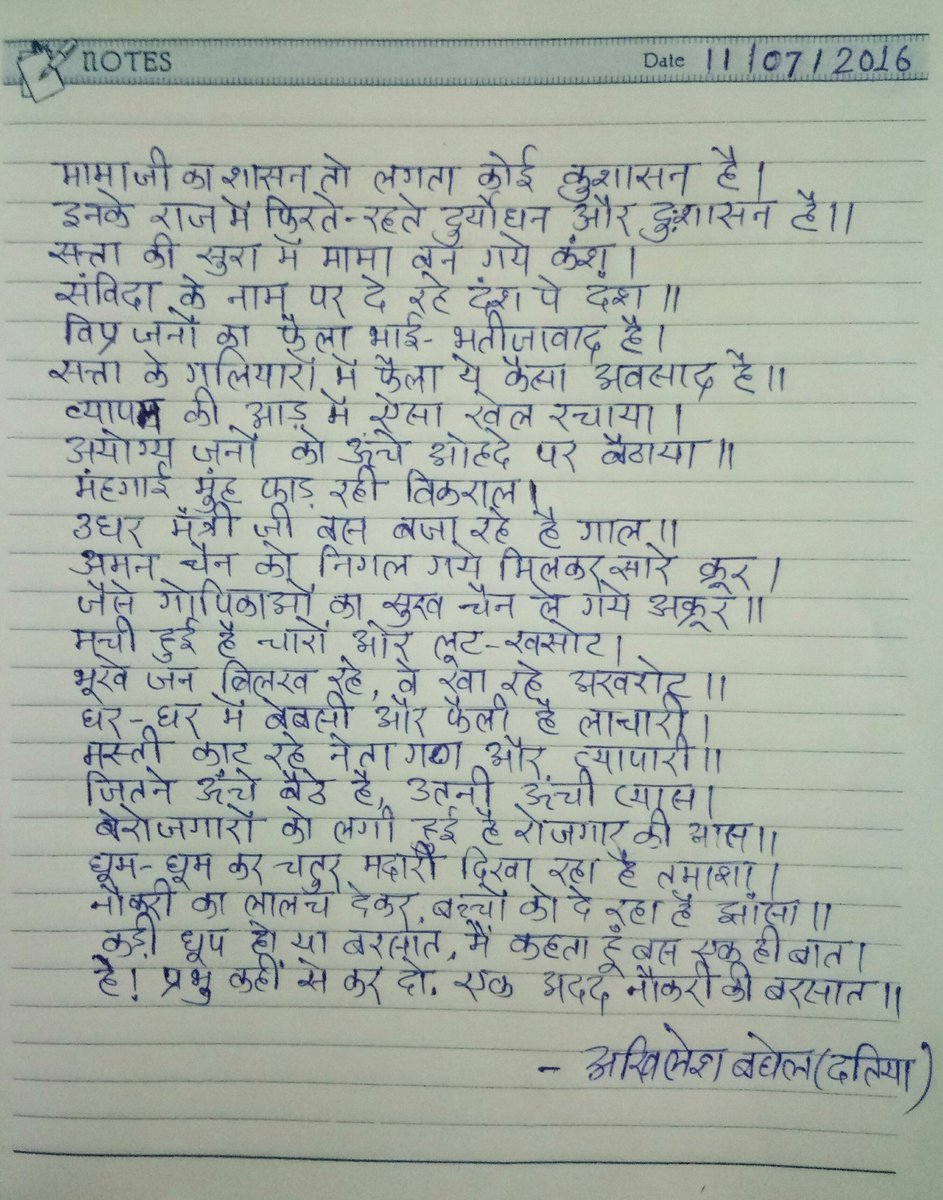 NOTES Date 11/07/2016
मामाजी का शासन तो लगता कोई कुशासन है।
इनके राज में फिरते-रहते दुर्योधन और दुःशासन है॥
सत्ता की सुरा में मामा बन गये कंश।
संविदा के नाम पर दे रहे दंश पे दंश॥
विप्र जनों का फैला भाई-भतीजावाद है।
सत्ता के गलियारों में फैला ये कैसा अवसाद है॥
व्यापम की आड़ में ऐसा खेल रचाया।
अयोग्य जनों को ऊँचे ओहदे पर बैठाया॥
मंहगाई मुंह फाड़ रही विकराल।
उधर मंत्री जी बस बजा रहे है गाल॥
अमन चैन को निगल गये मिलकर सारे क्रूर।
जैसे गोपिकाओं का सुख चैन ले गये अक्रूर॥
मची हुई है चारों ओर लूट-खसोट।
भूखे जन बिलख रहे, वे खा रहे अखरोट॥
घर-घर में बेबसी और फैली है लाचारी।
मस्ती काट रहे नेता गण और व्यापारी॥
जितने ऊँचे बैठे है, उतनी ऊँची प्यास।
बेरोजगारों को लगी हुई है रोजगार की आस॥
घूम-घूम कर चतुर मदारी दिखा रहा है तमाशा।
नौकरी का लालच देकर, बच्चों को दे रहा है झांसा॥
कड़ी धूप हो या बरसात, मैं कहता हूँ बस एक ही बात।
है! प्रभु कहीं से कर दो. एक अदद नौकरी की बरसात॥
- अखिलेश बघेल (दतिया)